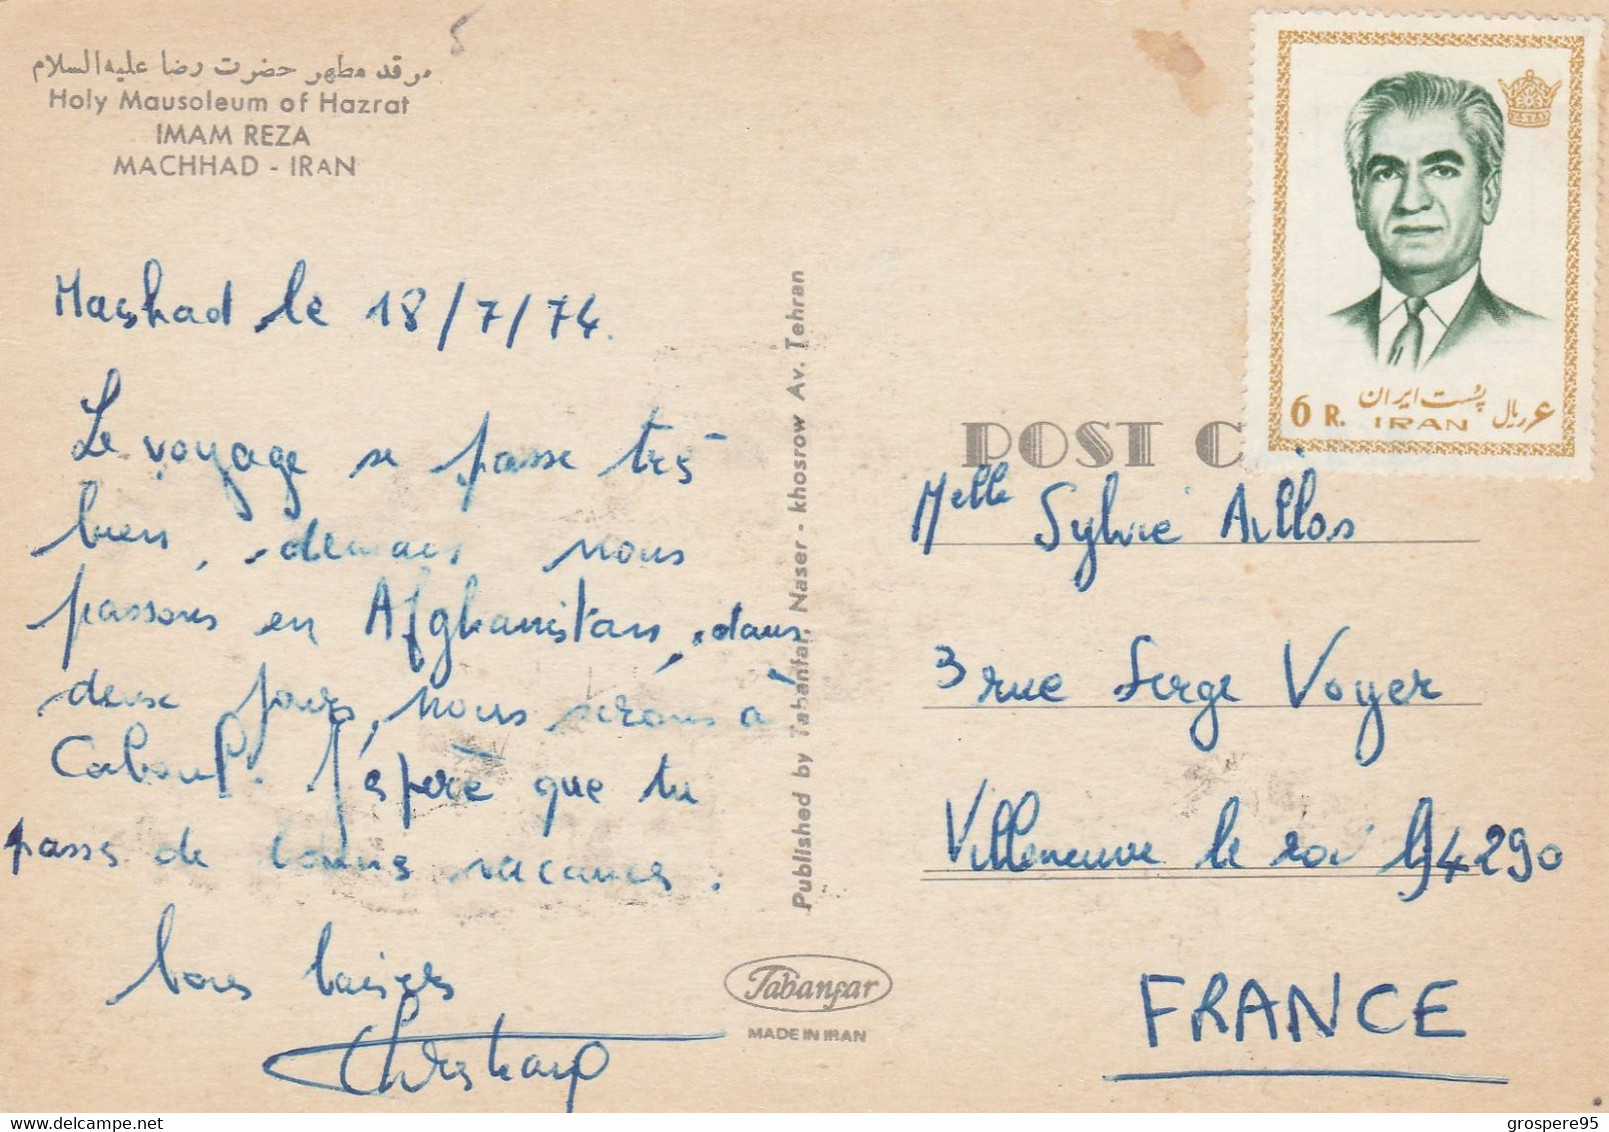 مرقد مطهر حضرت رضا علیه السلام
Holy Mausoleum of Hazrat
IMAM REZA
MACHHAD - IRAN
5
Mashad le 18/7/74.
Le voyage se passe très
bien, demain nous
passons en Afghanistan, dans
deux jours, nous serons à
Caboul. J'espère que tu
passe de bonnes vacances.
bons baisers
Published by Tabanfar, Naser - khosrow Av. Tehran
Tabanfar
MADE IN IRAN
6 R. پست ایران ۶ ریال
IRAN
POST C
Melle Sylvie
3 rue Serge Voyer
Villeneuve le roi 94290
FRANCE
delcampe.net
grospere95